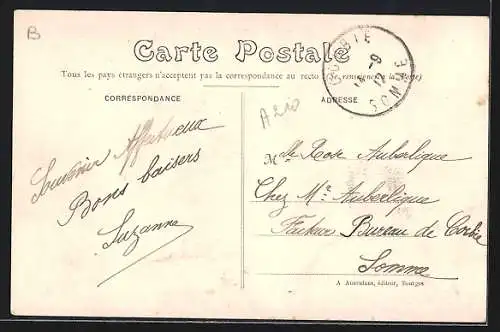 B
Carte Postale
Tous les pays étrangers n'acceptent pas la correspondance au recto (Se renseigner à la Poste)
CORBIE
SOMME
14 -9
12
CORRESPONDANCE
ADRESSE
A210
Souvenir Affectueux
Bons baisers
Suzanne
Mlle Rose Auberlique
Chez Mr Auberlique
Facteur Bureau de Corbie
Somme
éditeur, Bourges